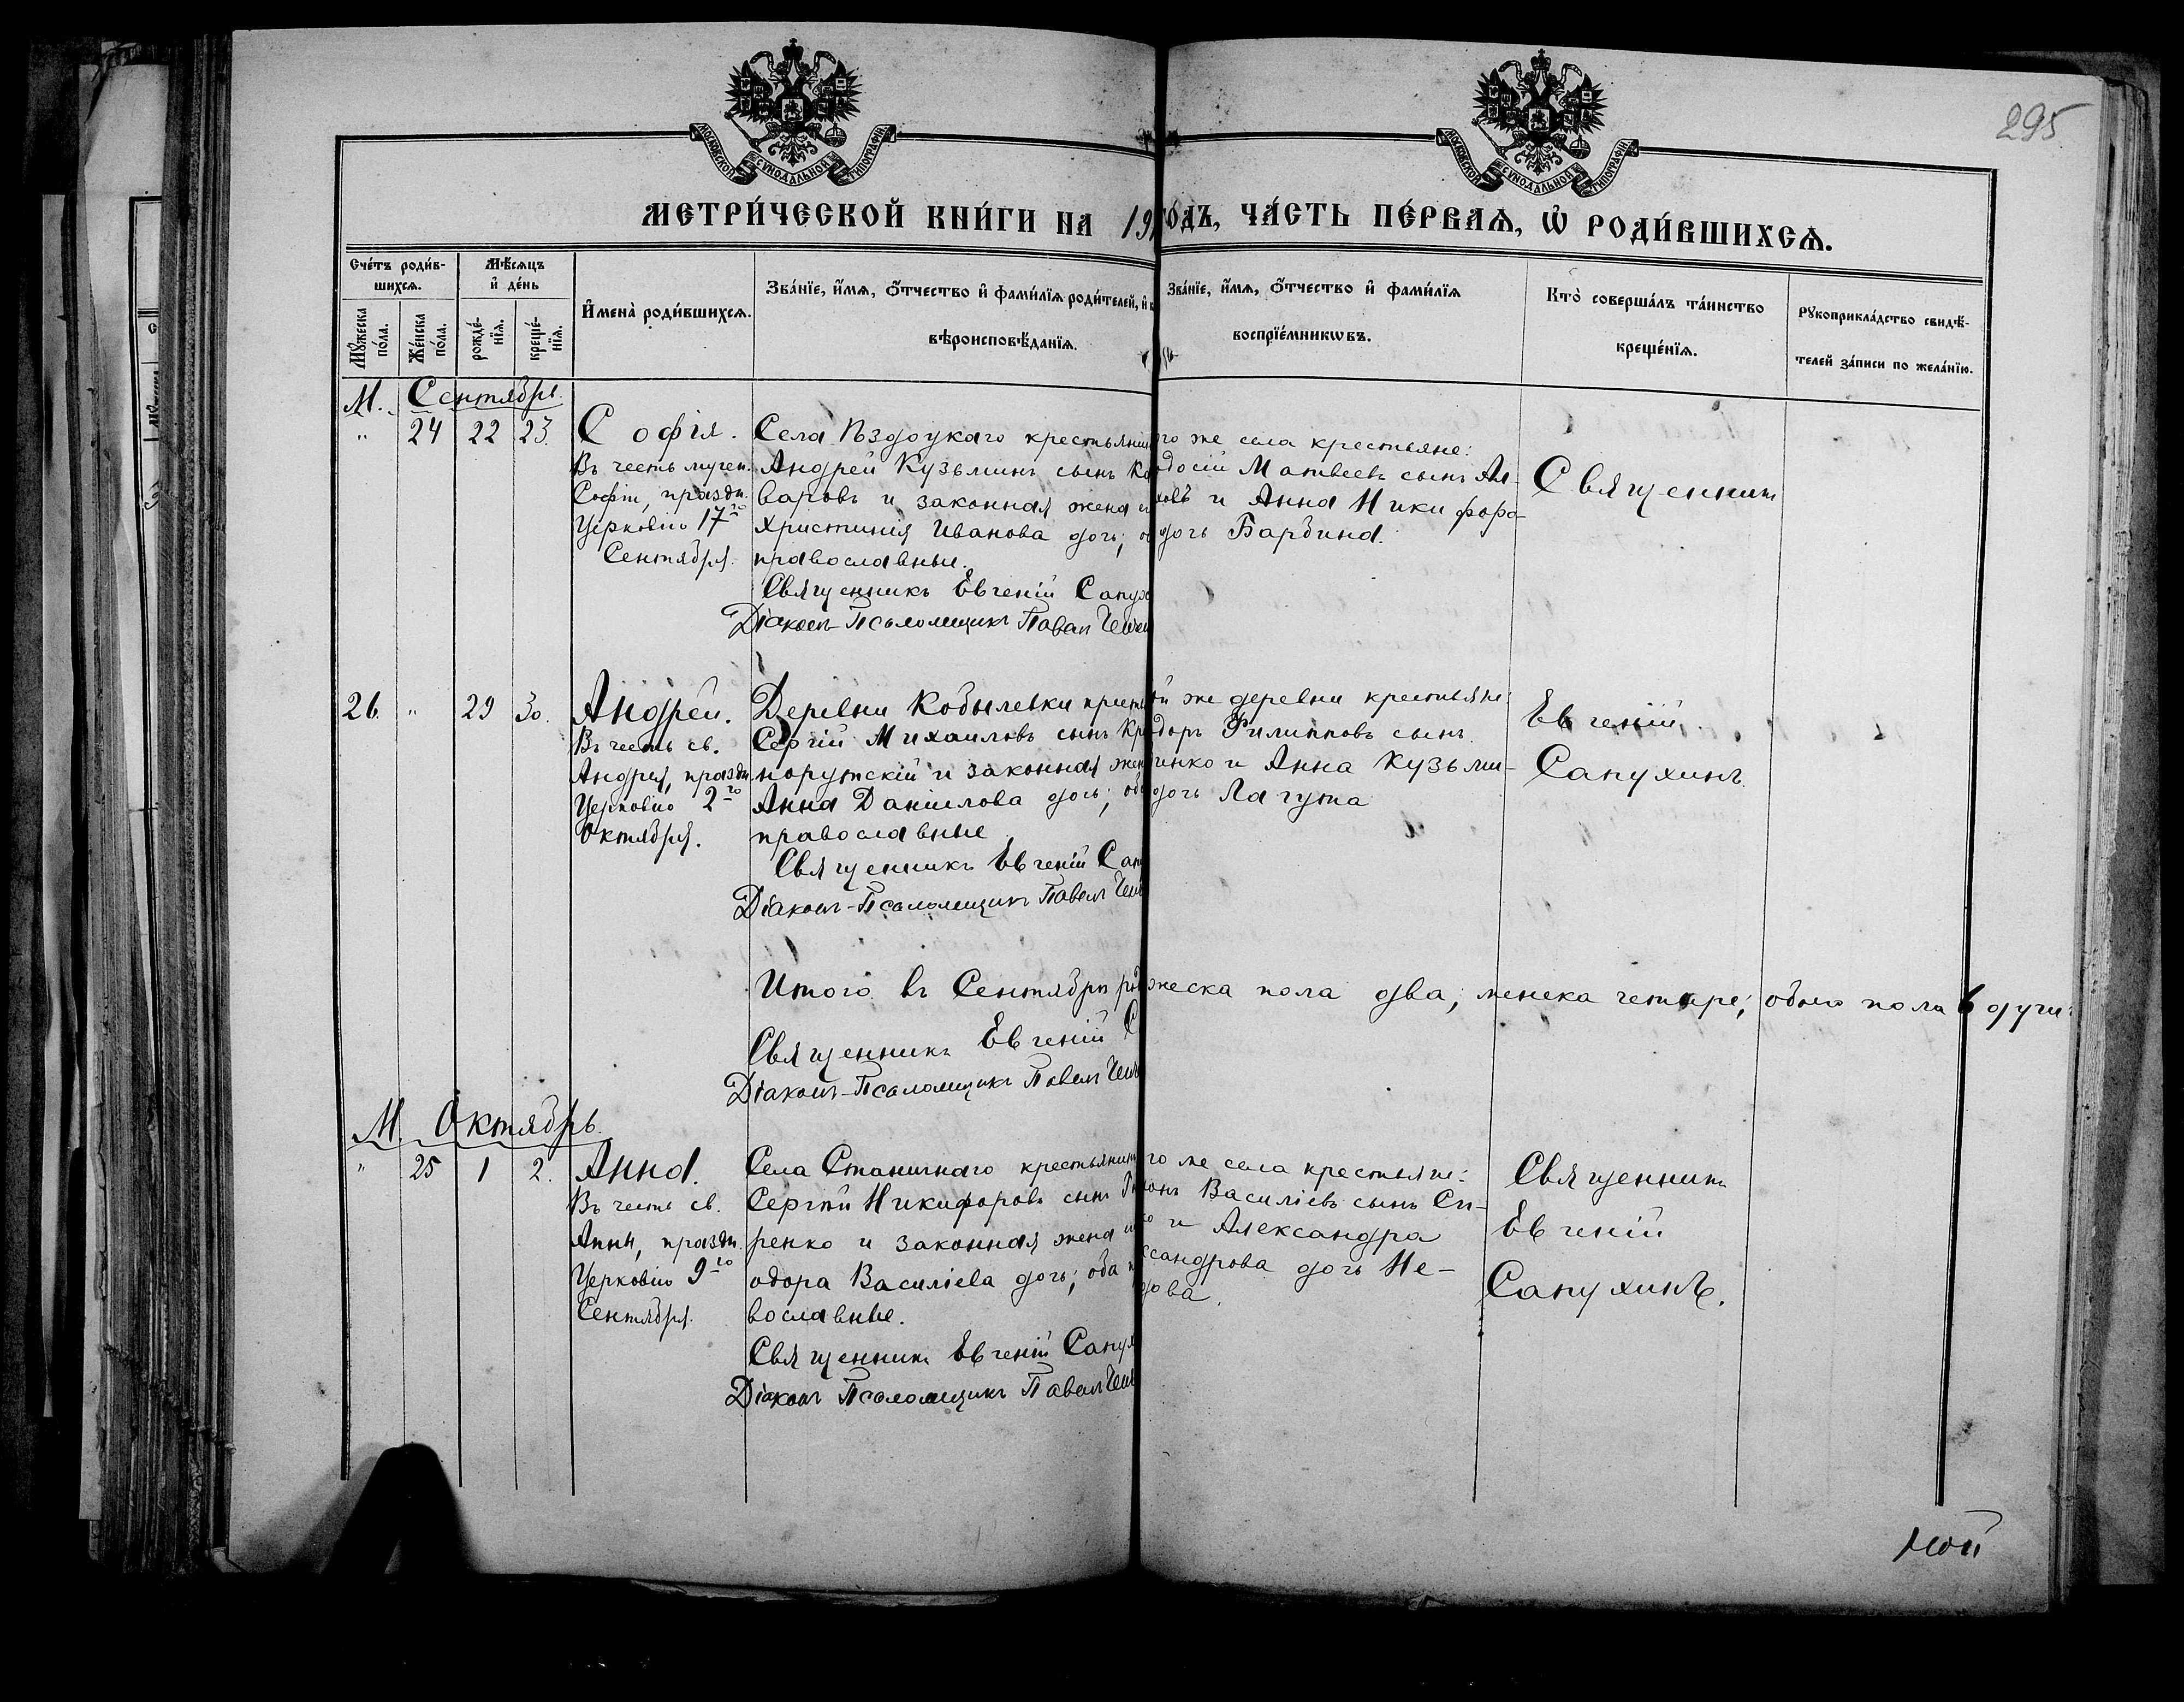 295
МОСКОВСКОЙ СѴНОДАЛЬНОЙ ТИПОГРАФІИ
МОСКОВСКОЙ СѴНОДАЛЬНОЙ ТИПОГРАФІИ
МЕТРИ́ЧЕСКОЙ КНИ́ГИ НА 19
ГО́ДЪ, ЧА́СТЬ ПЕ́РВАѦ, Ѡ҆ РОДИ́ВШИХСѦ.
Сче́тъ роди́в-
шихсѧ.
Мѣ́сѧцъ
и҆ де́нь
Мꙋ́жеска
по́ла.
Же́нска
по́ла.
рожде́-
нїѧ.
креще́-
нїѧ.
И҆мена̀ роди́вшихсѧ.
Зва́нїе, и҆́мѧ, ѻ҆́тчество и҆ фами́лїѧ роди́телей, и҆
вѣроисповѣ́данїѧ.
Зва́нїе, и҆́мѧ, ѻ҆́тчество и҆ фами́лїѧ
воспрїе́мникѡвъ.
Кто̀ соверша́лъ та́инство
креще́нїѧ.
Рꙋкоприкла́дство свидѣ́-
телей за́писи по жела́нїю.
М. Сентябрь.
" 24 22 23.
Софія.
Въ честь мучен.
Софіи, праздн.
Церковію 17го
Сентября.
Села крестьянин
Андрей Кузьминъ сынъ Ко
варовъ и законная жена
Христинія Иванова дочь;
православные.
Священникъ Евгеній Сапух
Діаконъ-Псаломщикъ Павел
го же села крестьяне:
одосій Матвеевъ сынъ
и Анна Никифоро
дочь Бардина.
Священникъ
26. " 29 30.
Андрей.
Въ честь св.
Андрея, праздн.
Церковію 2го
Октября.
Деревни Кобылевки
Сергій Михаиловъ сынъ Кр
порутскій и законная жен
Анна Даніилова дочь; об
православные
Священникъ Евгеній Сап
Діаконъ-Псаломщикъ Павел
й же деревни крестьяне
доръ Филипповъ сынъ
инко и Анна Кузьми-
дочь Лагута
Евгеній
Сапухинъ.
Итого въ Сентябрѣ род
жеска пола два, женска четыре, обоего пола 6
Священникъ Евгеній С
Діаконъ-Псаломщикъ Павел
М. Октябрь.
" 25 1 2.
Анна.
Въ честь св.
Анны, праздн.
Церковію 9го
Сентября.
Села Станичнаго крестьянин
Сергѣй Никифоровъ сынъ
ренко и законная жена и
одора Василіева дочь; оба п
вославные.
Священникъ Евгеній Сапух
Діаконъ Псаломщикъ Павел
го же села крестьяне:
Василіевъ сынъ Си-
о и Александра
ксандрова дочь Не-
дова.
Священникъ
Евгеній
Сапухинъ.